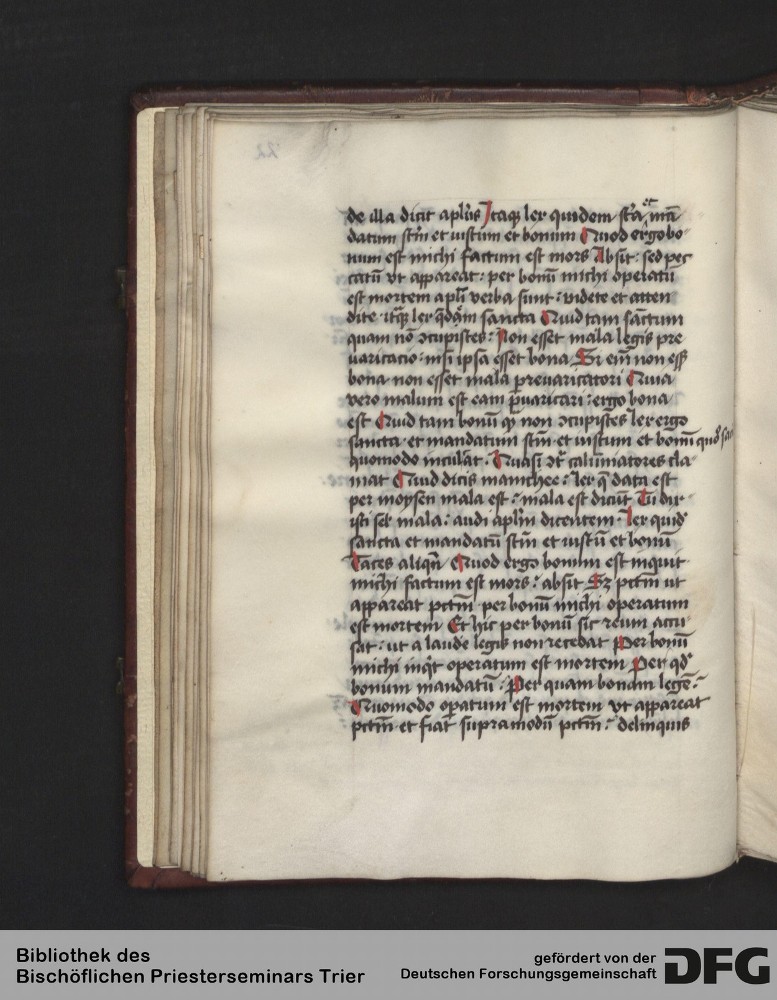 de illa dicit apl̄us Itaq; lex quidem sc̄ta ⁊ mā
datum sc̄m et iustum et bonum Quod ergo bo
num est michi factum est mors Absit: sed pec
catū vt appareat: per bonū michi operatū
est mortem apl̄i verba sunt: videte et atten
dite itaq; lex q̄dam sancta Quid tam sanctum
quam nō ↄcupisces: Non esset mala legis pre
uaricacio: nisi ipsa esset bona Si eīm non eēt
bona non esset mala preuaricatori Quia
vero malum est eam p̄uaricari: ergo bona
est Quid tam bonū q̄ non ↄcupisces lex ergo
sancta et mandatum sc̄m et iustum et bonū
quomodo inculcat. Quasi calūmniatores cla
mat Quid dicis manichee: lex q̄ data est
per moysen mala est: mala est dicūt Tu dix
isti mala: audi apl̄m dicentem: lex quidē
sancta et mandatū sc̄m et iustū et bonū
Taces aliqn̄ Quod ergo bonum est inquit
michi factum est mors: absit Sz pcc̄tm ut
appareat pcc̄tm per bonū michi operatum
est mortem Et hic per bonū sic reum accu
sat: ut a laude legis non recedat Per bonū
michi inq̄t operatum est mortem Per qd̄
bonum mandatū: Per quam bonam legē:
Quomodo op̄atum est mortem vt appareat
pcc̄tm et fiat supra modū pcc̄tm: delinquis
Bibliothek des
Bischöflichen Priesterseminars Trier
gefördert von der
Deutschen Forschungsgemeinschaft
DFG